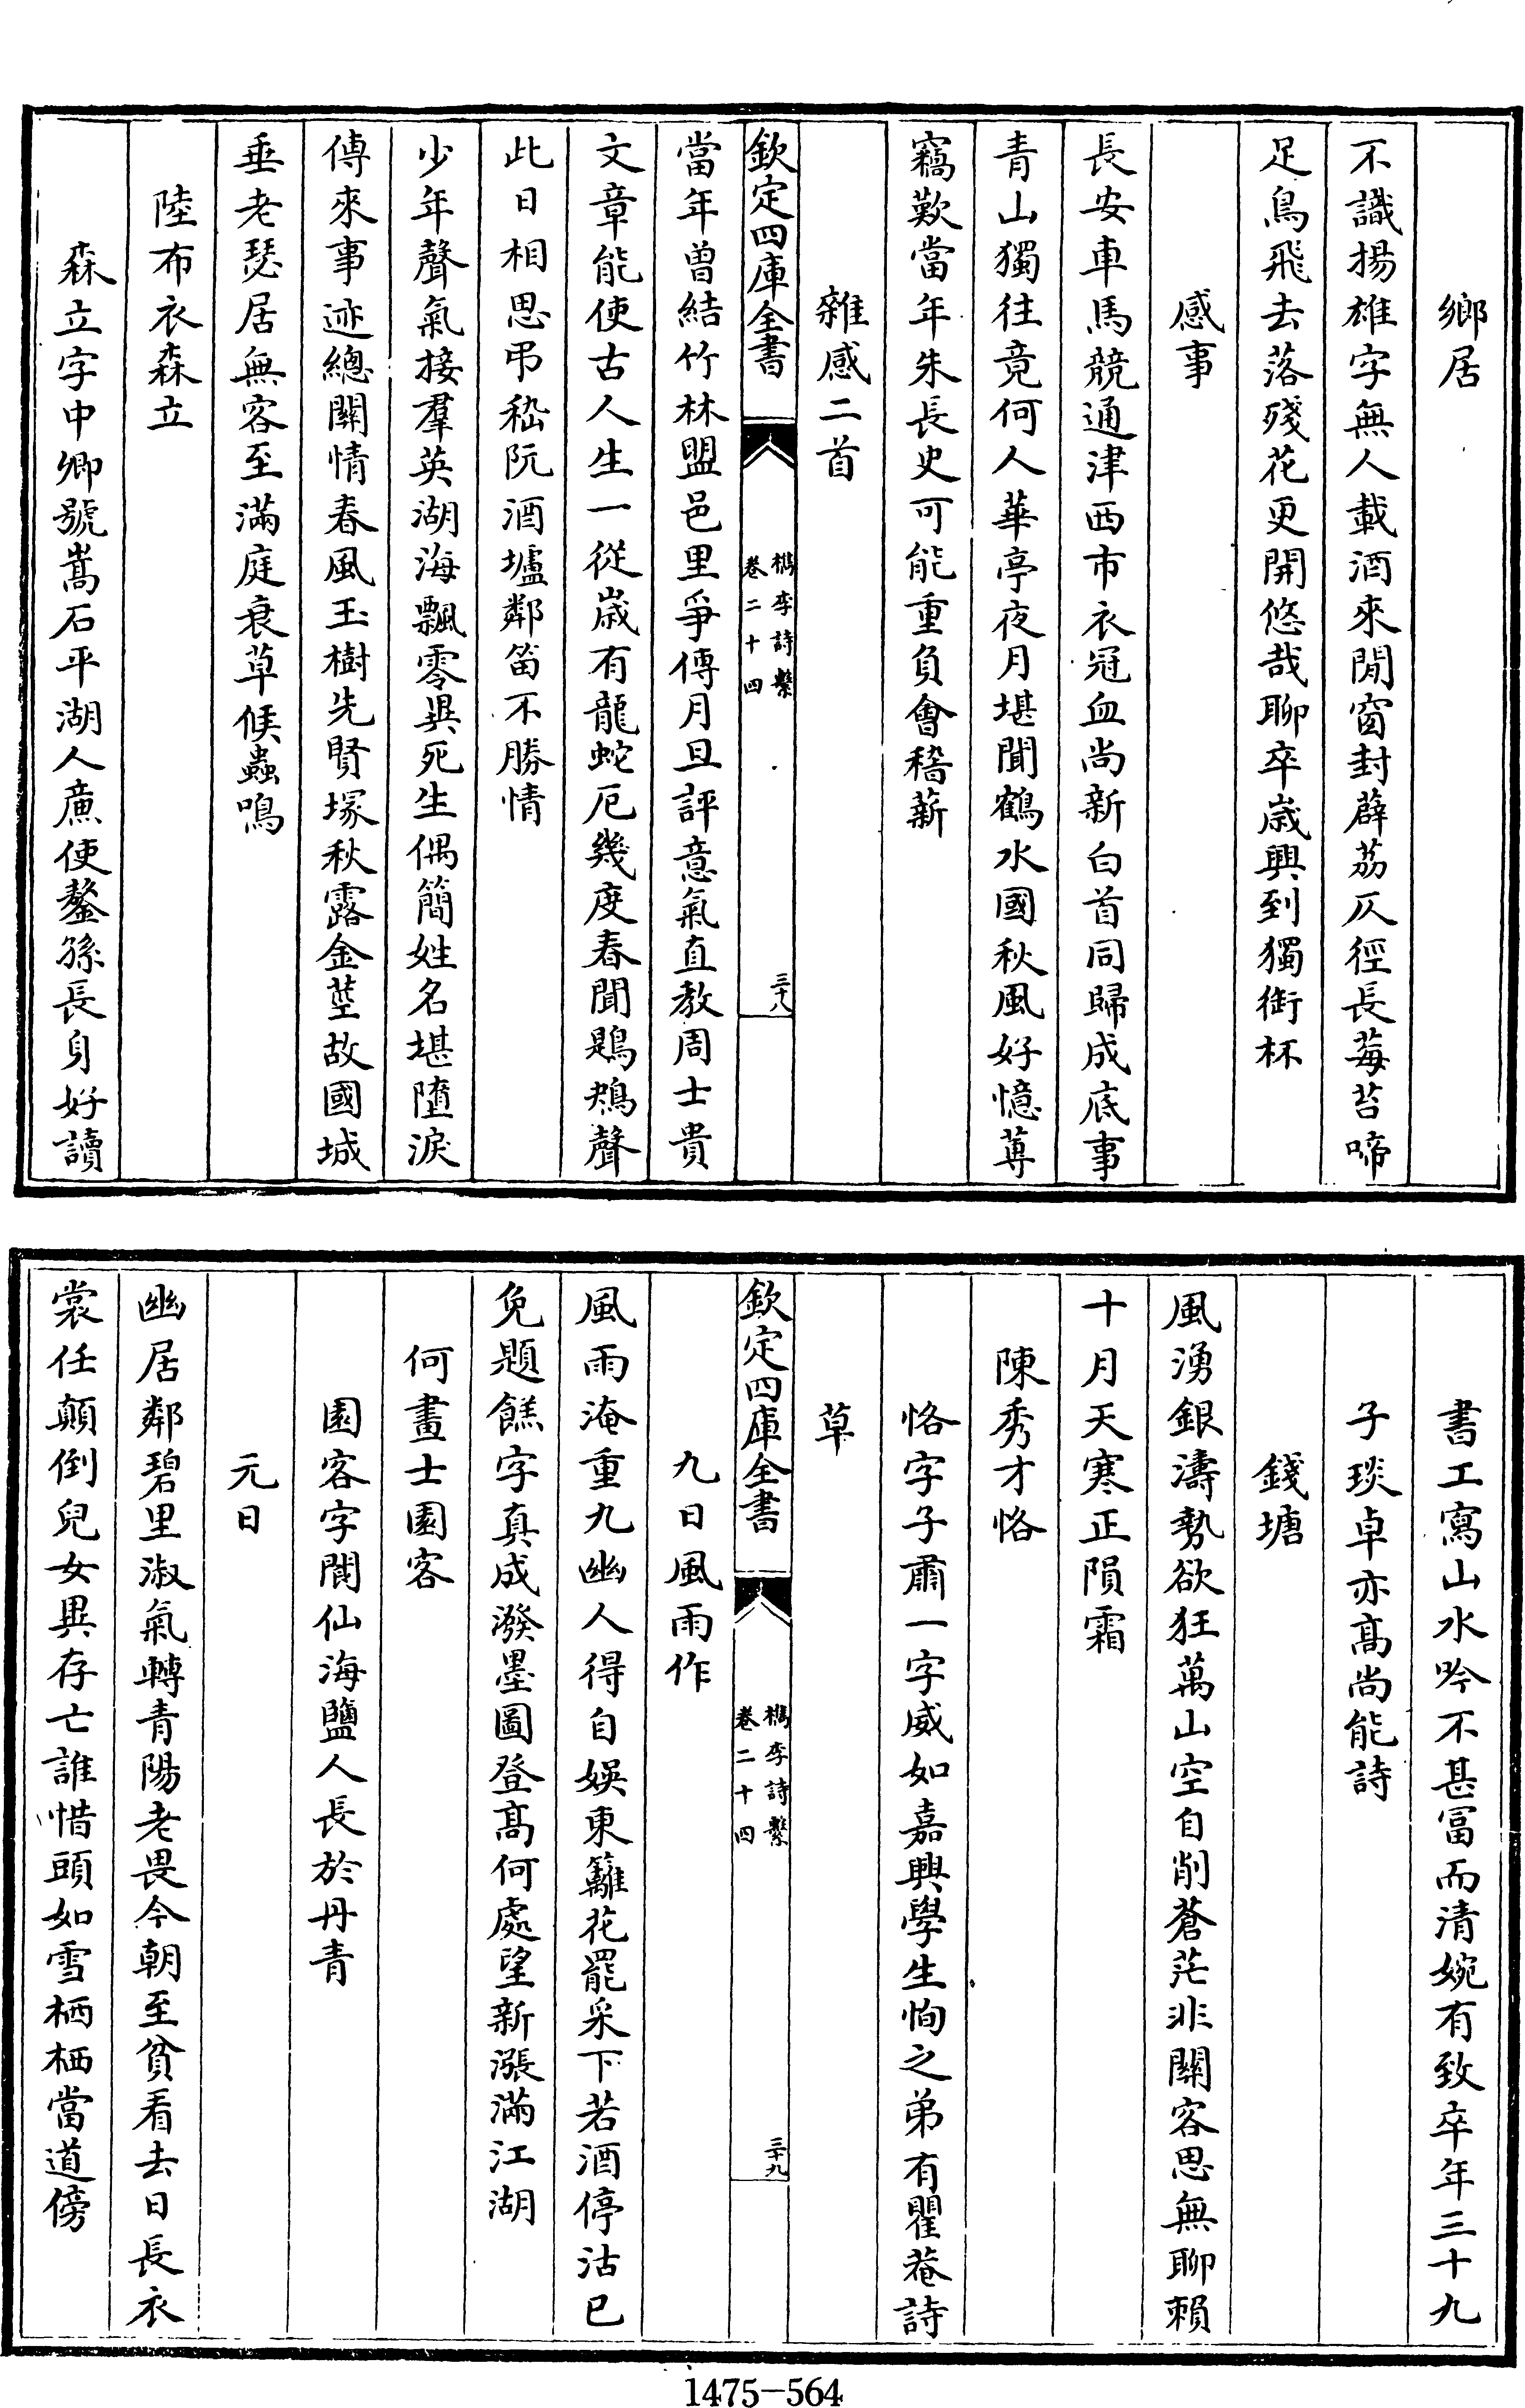 鄉居
不識揚雄字無人載酒來閒窗封薜荔仄徑長莓苔啼
足鳥飛去落殘花更開悠哉聊卒歲興到獨銜杯
感事
長安車馬競通津西市衣冠血尚新白首同歸成底事
青山獨往竟何人華亭夜月堪聞鶴水國秋風好憶蓴
竊歎當年朱長史可能重負會稽薪
雜感二首
欽定四庫全書
檇李詩繫
卷二十四
三十八
當年曾結竹林盟邑里爭傳月旦評意氣直教周士貴
文章能使古人生一從歲有龍蛇厄幾度春聞鶗鴂聲
此日相思弔嵇阮酒壚鄰笛不勝情
少年聲氣接羣英湖海飄零異死生偶簡姓名堪墮淚
傳來事迹總關情春風玉樹先賢塚秋露金莖故國城
垂老瑟居無客至滿庭衰草候蟲鳴
陸布衣森立
森立字中卿號嵩石平湖人廉使鏊孫長身好讀
書工寫山水吟不甚富而清婉有致卒年三十九
子琰卓亦高尚能詩
錢塘
風湧銀濤勢欲狂萬山空自削蒼茫非關客思無聊賴
十月天寒正隕霜
陳秀才恪
恪字子肅一字威如嘉興學生恂之弟有瞿菴詩
草
欽定四庫全書
檇李詩繫
卷二十四
三十九
九日風雨作
風雨淹重九幽人得自娛東籬花罷采下若酒停沽已
免題餻字真成潑墨圖登高何處望新漲滿江湖
何畫士園客
園客字閬仙海鹽人長於丹青
元日
幽居鄰碧里淑氣轉青陽老畏今朝至貧看去日長衣
裳任顛倒兒女異存亡誰惜頭如雪栖栖當道傍
1475-564